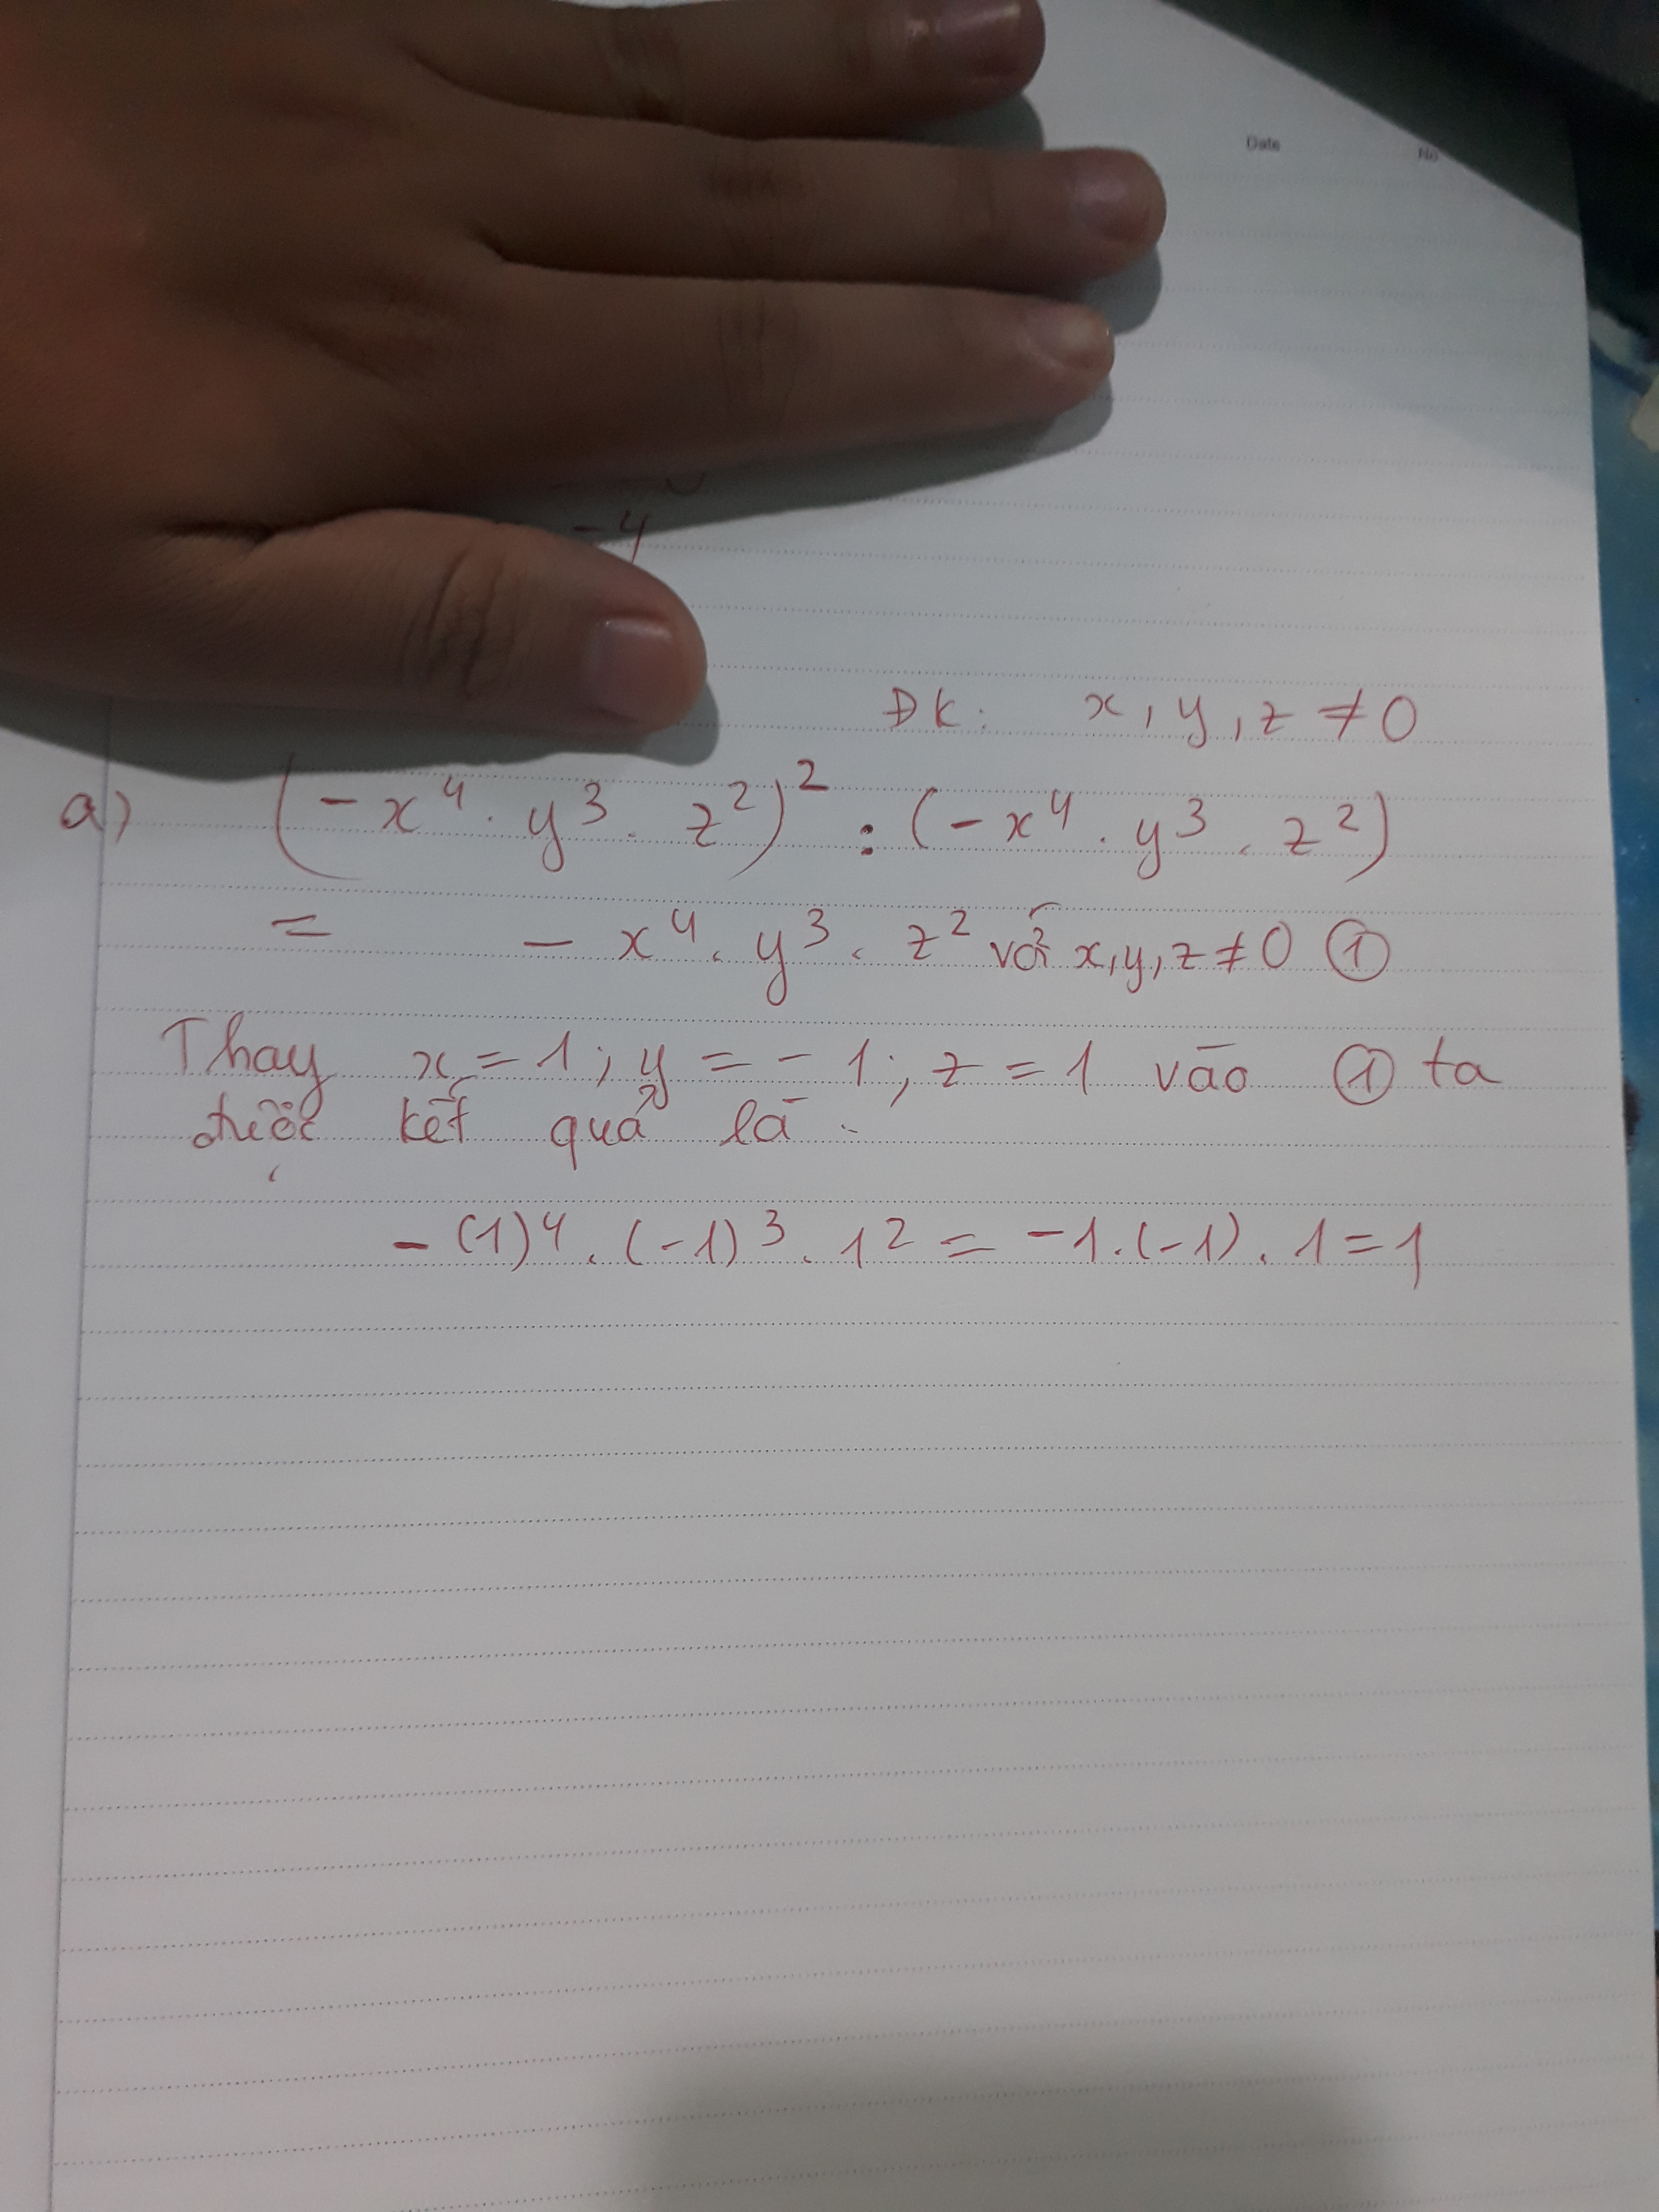 Date No
-4
ĐK: x, y, z ≠ 0
a) (-x⁴ . y³ . z²)² : (-x⁴ . y³ . z²)
= - x⁴ . y³ . z² với x, y, z ≠ 0 ①
Thay x = 1 ; y = - 1 ; z = 1 vào ① ta
được kết quả là
- (1)⁴ . (-1)³ . 1² = -1 . (-1) . 1 = 1